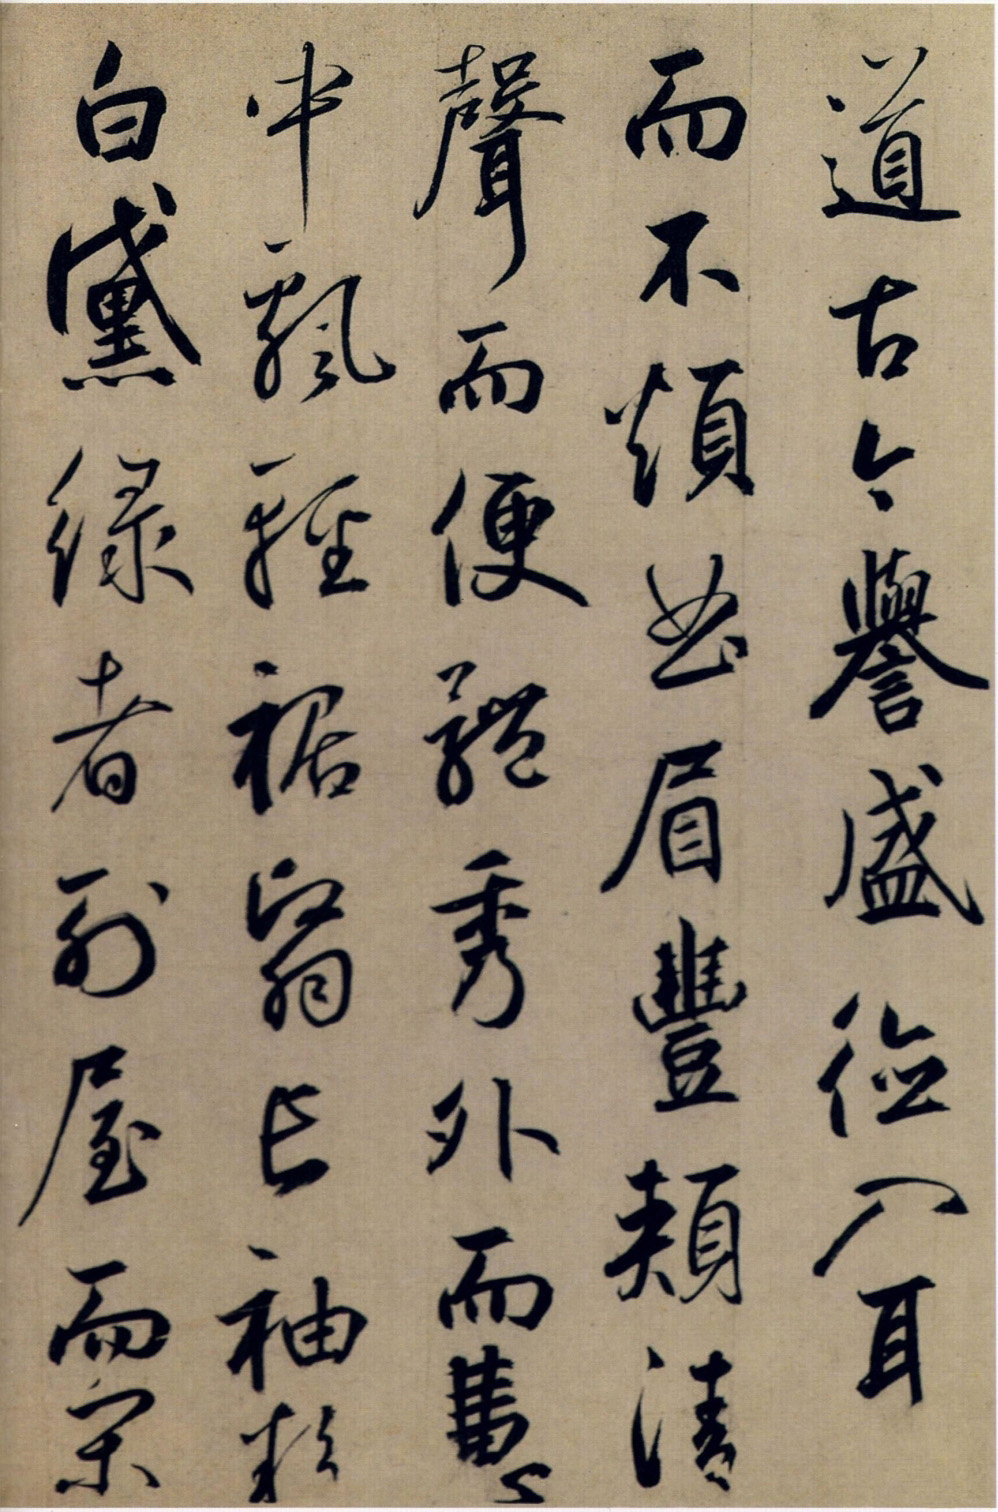 道古今譽盛德入耳
而不煩曲眉豐頰清
聲而便體秀外而惠
中飄輕裾翳長袖粉
白黛綠者列屋而閑